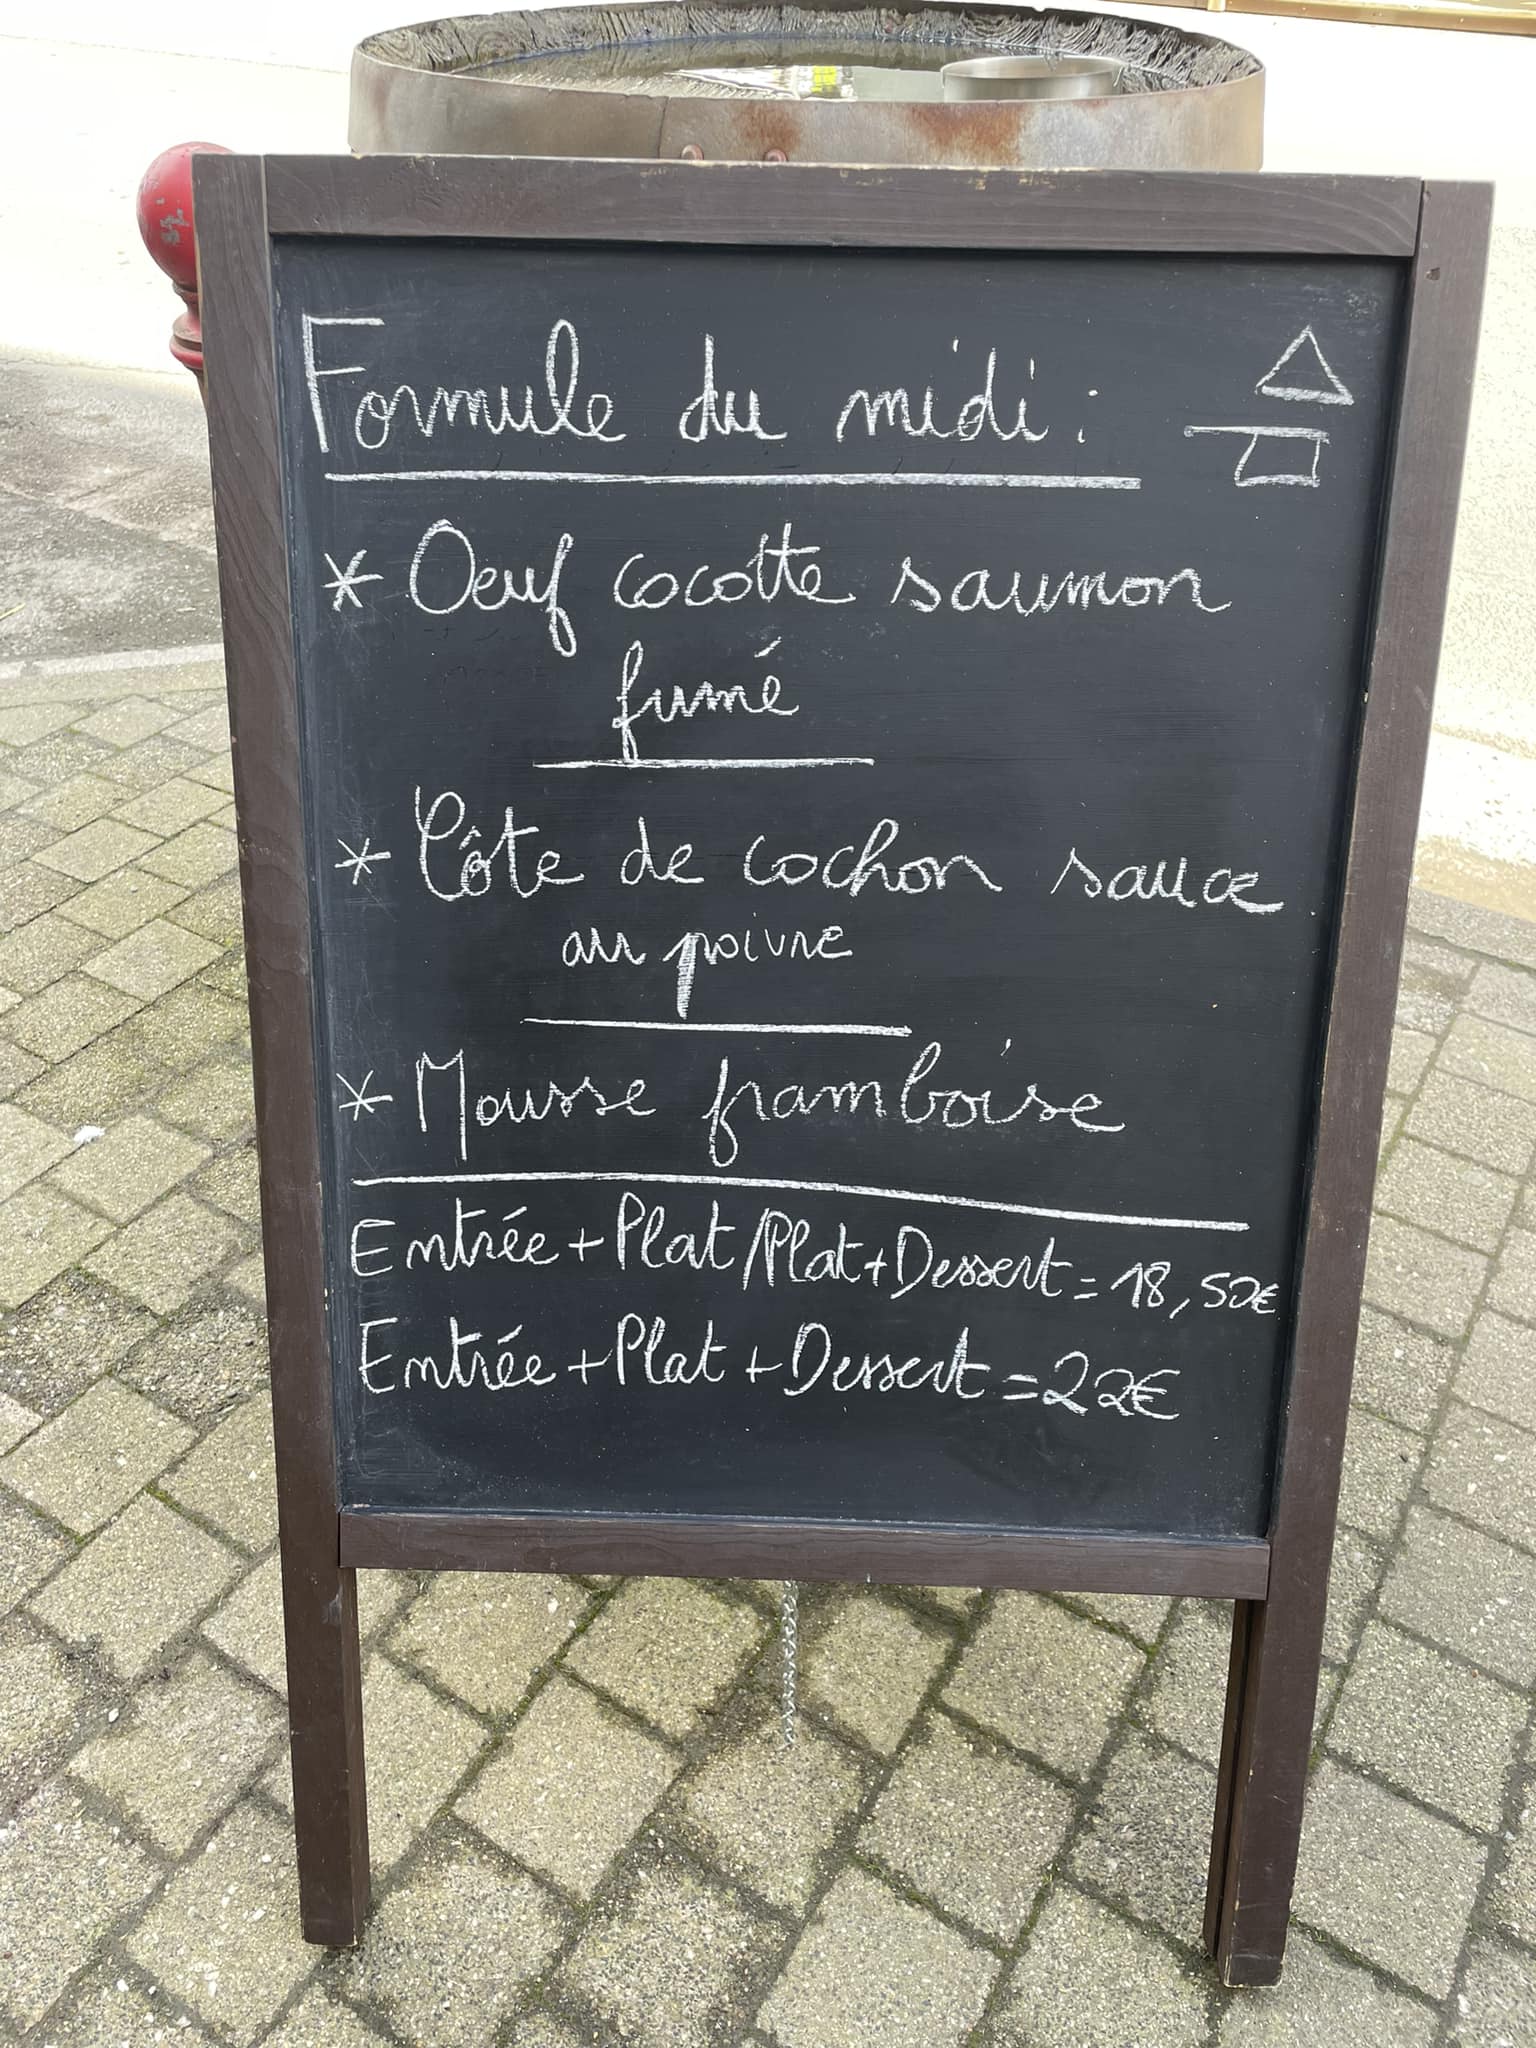 Formule du midi :
* Oeuf cocotte saumon
fumé
* Côte de cochon sauce
au poivre
* Mousse framboise
Entrée + Plat / Plat + Dessert = 18,50€
Entrée + Plat + Dessert = 22€